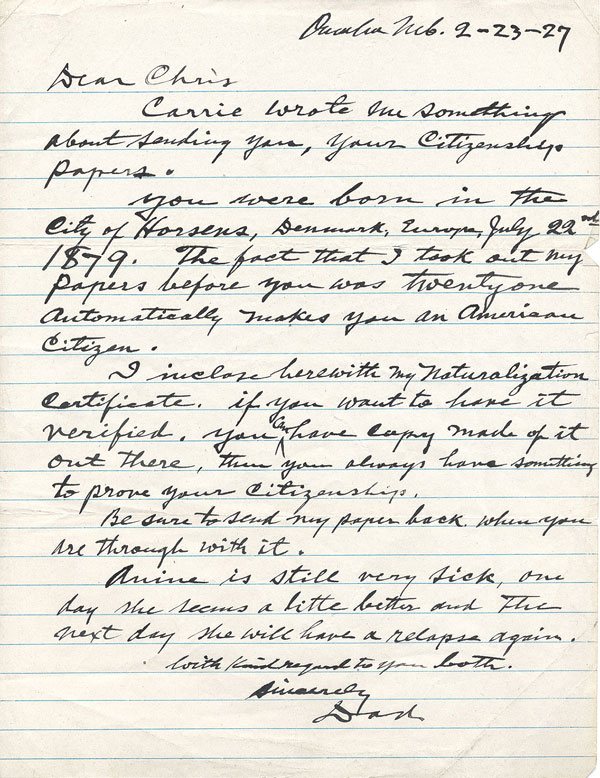 Omaha Neb. 2-23-27
Dear Chris
Carrie wrote me something
about sending you, your Citizenship
papers.
you were born in the
City of Horsens, Denmark, Europe, July 22nd
1879. The fact that I took out my
papers before you was twentyone
automatically makes you an American
Citizen.
I inclose herewith my Naturalization
Certificate. if you want to have it
verified. you can have copy made of it
out there, then you always have something
to prove your Citizenship.
Be sure to send my paper back when you
are through with it.
Anine is still very sick, one
day she seems a little better and The
next day she will have a relapse again.
With kind regard to you both.
Sincerely
Dad